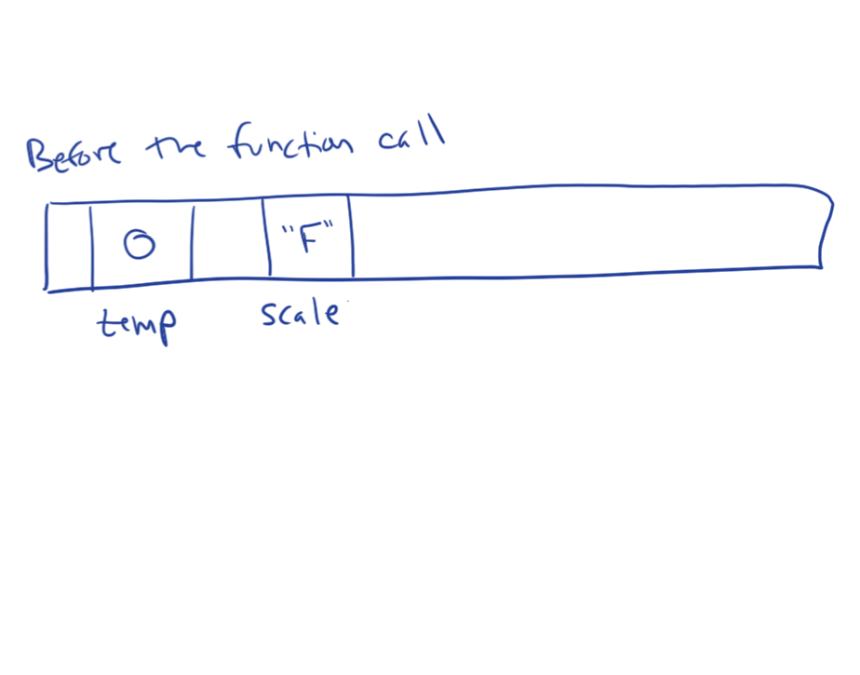 Before the function call
0 "F"
temp scale